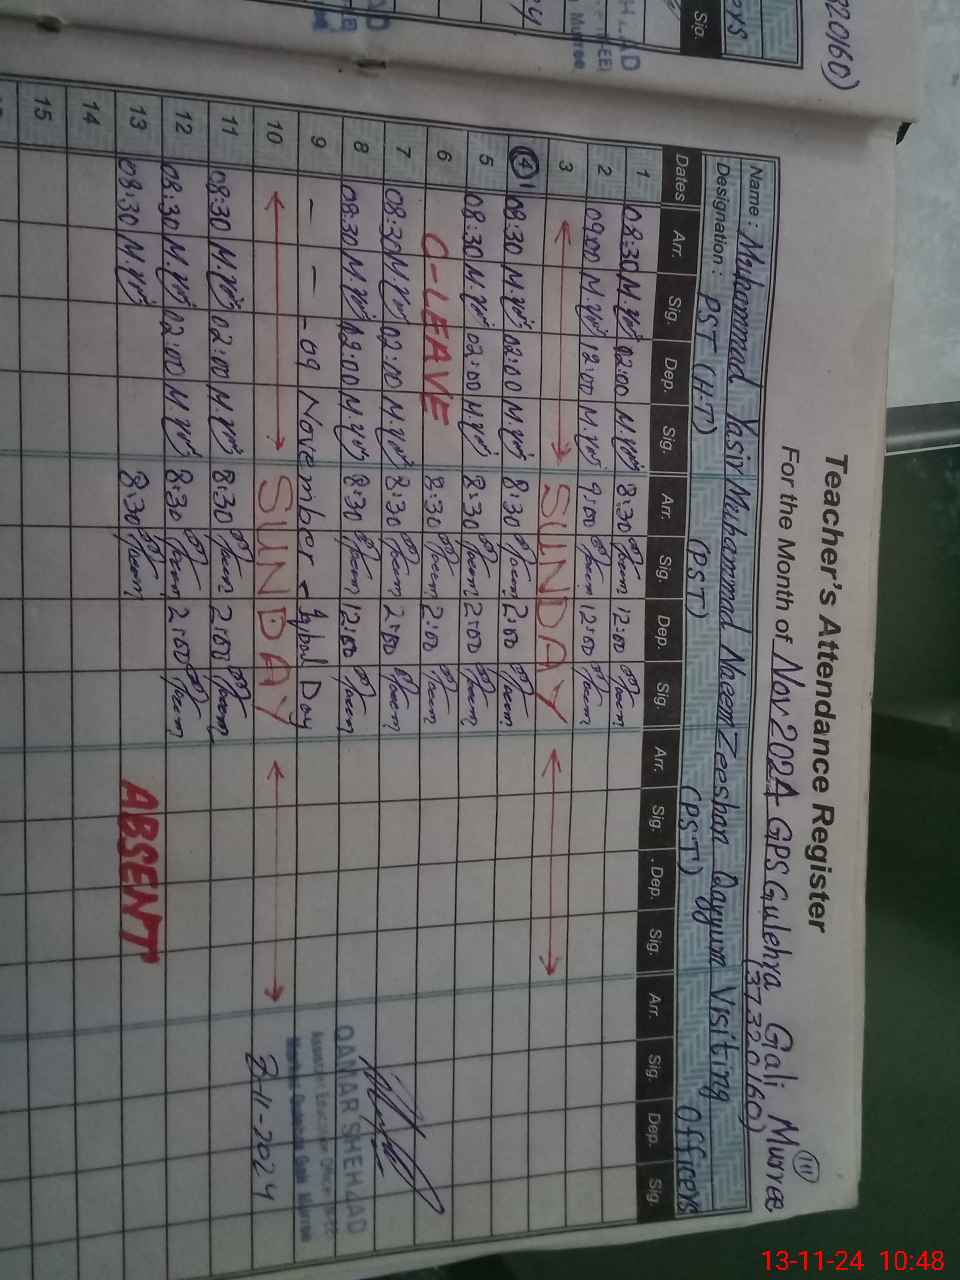 Teacher's Attendance Register
For the Month of Nov 2024 GPS Gulehra Gali Murree
(37320160)
Name: Muhammad Yasir Muhammad Naeem Zeeshan Qayyum Visiting
Designation: PST (H.T) (PST) (PST) Officers
Dates Arr. Sig. Dep. Sig. Arr. Sig. Dep. Sig. Arr. Sig. Dep. Sig. Arr. Sig. Dep. Sig.
1 08:30 02:00 8:30 12:00
2 09:00 12:00 9:00 12:00
3 SUNDAY
4 08:30 02:00 8:30 2:00
5 08:30 02:00 8:30 2:00
6 C-LEAVE 8:30 2:00
7 08:30 02:00 8:30 2:00
8 08:30 12:00 8:30 12:00
9 - - - 09 November - Iqbal Day
10 SUNDAY
11 08:30 02:00 8:30 2:00
12 08:30 02:00 8:30 2:00
13 08:30 8:30 ABSENT
14
15
QAMAR SHEHZAD
-11-2024
320160)
Sig.
13-11-24 10:48